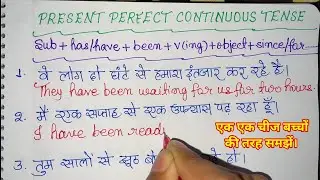 PRESENT PERFECT CONTINUOUS TENSE
Sub + has/have + been + v(ing) + object + since/for......
1. वे लोग दो घंटे से हमारा इंतजार कर रहे है।
They have been waiting for us for two hours.
2. मैं एक सप्ताह से एक उपन्यास पढ़ रहा हूँ।
I have been read
एक एक चीज बच्चों
की तरह समझें।
3. तुम सालों से झूठ बो हो।